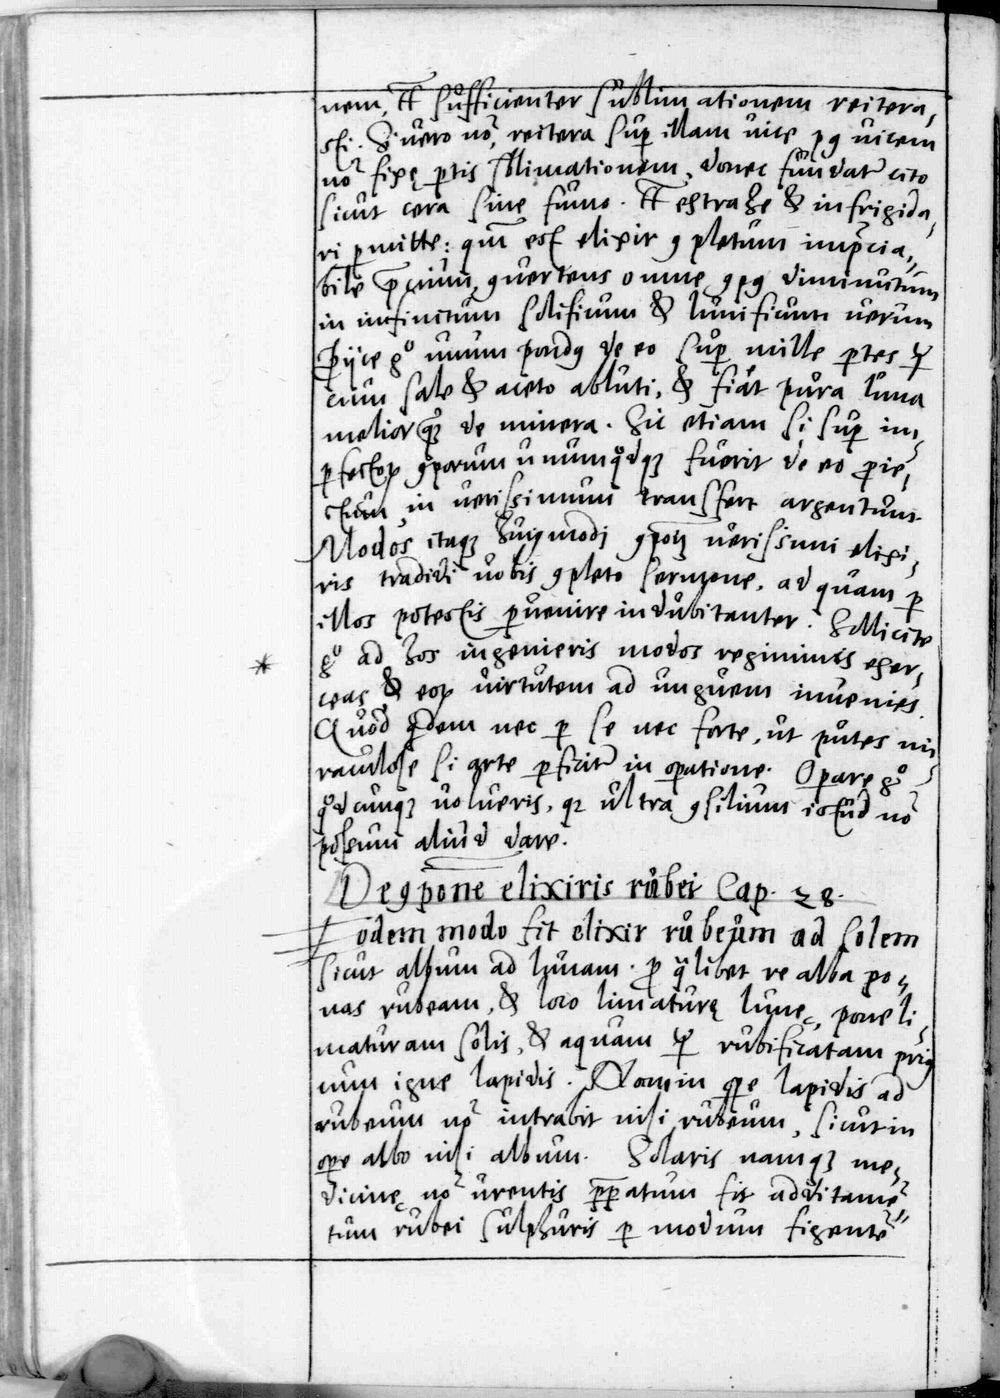 nem, tc̄ sufficienter sublimationem reitera,
sti. Si vero nō, reitera sup illam vice pꝯ vicem
nō fixę ptis sblimationem, donec fundat̃ cito
sicut cera sine fumo. tc̄ extrahe & infrigida,
ri pmitte: qm̄ est elixir ꝯpletum imp̄cia,,
bile p̄ciũ, ꝯvertens omne ꝯpꝯ diminutum
in infinitum solificum & lunificum verum
Proijce gͦ unum pondꝯ de eo sup mille ptes ☿
cum sale & aceto abluti, & fiat pura luna
melior qꝫ de minera. Sic etiam si sup im,
pfectoꝝ ꝯporum unumqdqꝫ fuerit de eo proie,
ctum, in verissimum transfert argentum.
Modos itaqꝫ huiꝯmodi ꝯponē verissimi elixi,
ris tradidi vobis ꝯpleto sermone, ad quam p
illos potestis pvenire indubitanter. Sollicite
gͦ ad hos ingenieris modos regiminis exer,
ceas & eoꝝ virtutem ad unguem invenies.
Quod qdem nec p se nec forte, ut putes mi,
raculose si arte pficit̃ in opatione. Opare gͦ
qdcunqꝫ volueris, qꝛ ultra ꝯsilium istud nō
possum aliud dare.
De ꝯpone elixiris rubei Cap. 28.
Eodem modo fit elixir rubeum ad solem
sicut album ad lunam. p qlibet re alba po,
nas rubeam, & loco limaturę lunę, pone li,
maturam solis, & aquam ☿ rubificatam priꝯ
cum igne lapidis. Nam in ope lapidis ad
rubeum nō intrabit nisi rubeum, sicut in
ope albo nisi album. Solaris namqꝫ me,
dicinę nō urentis ppatum fit additamē
tum rubei sulphuris p modum figentē